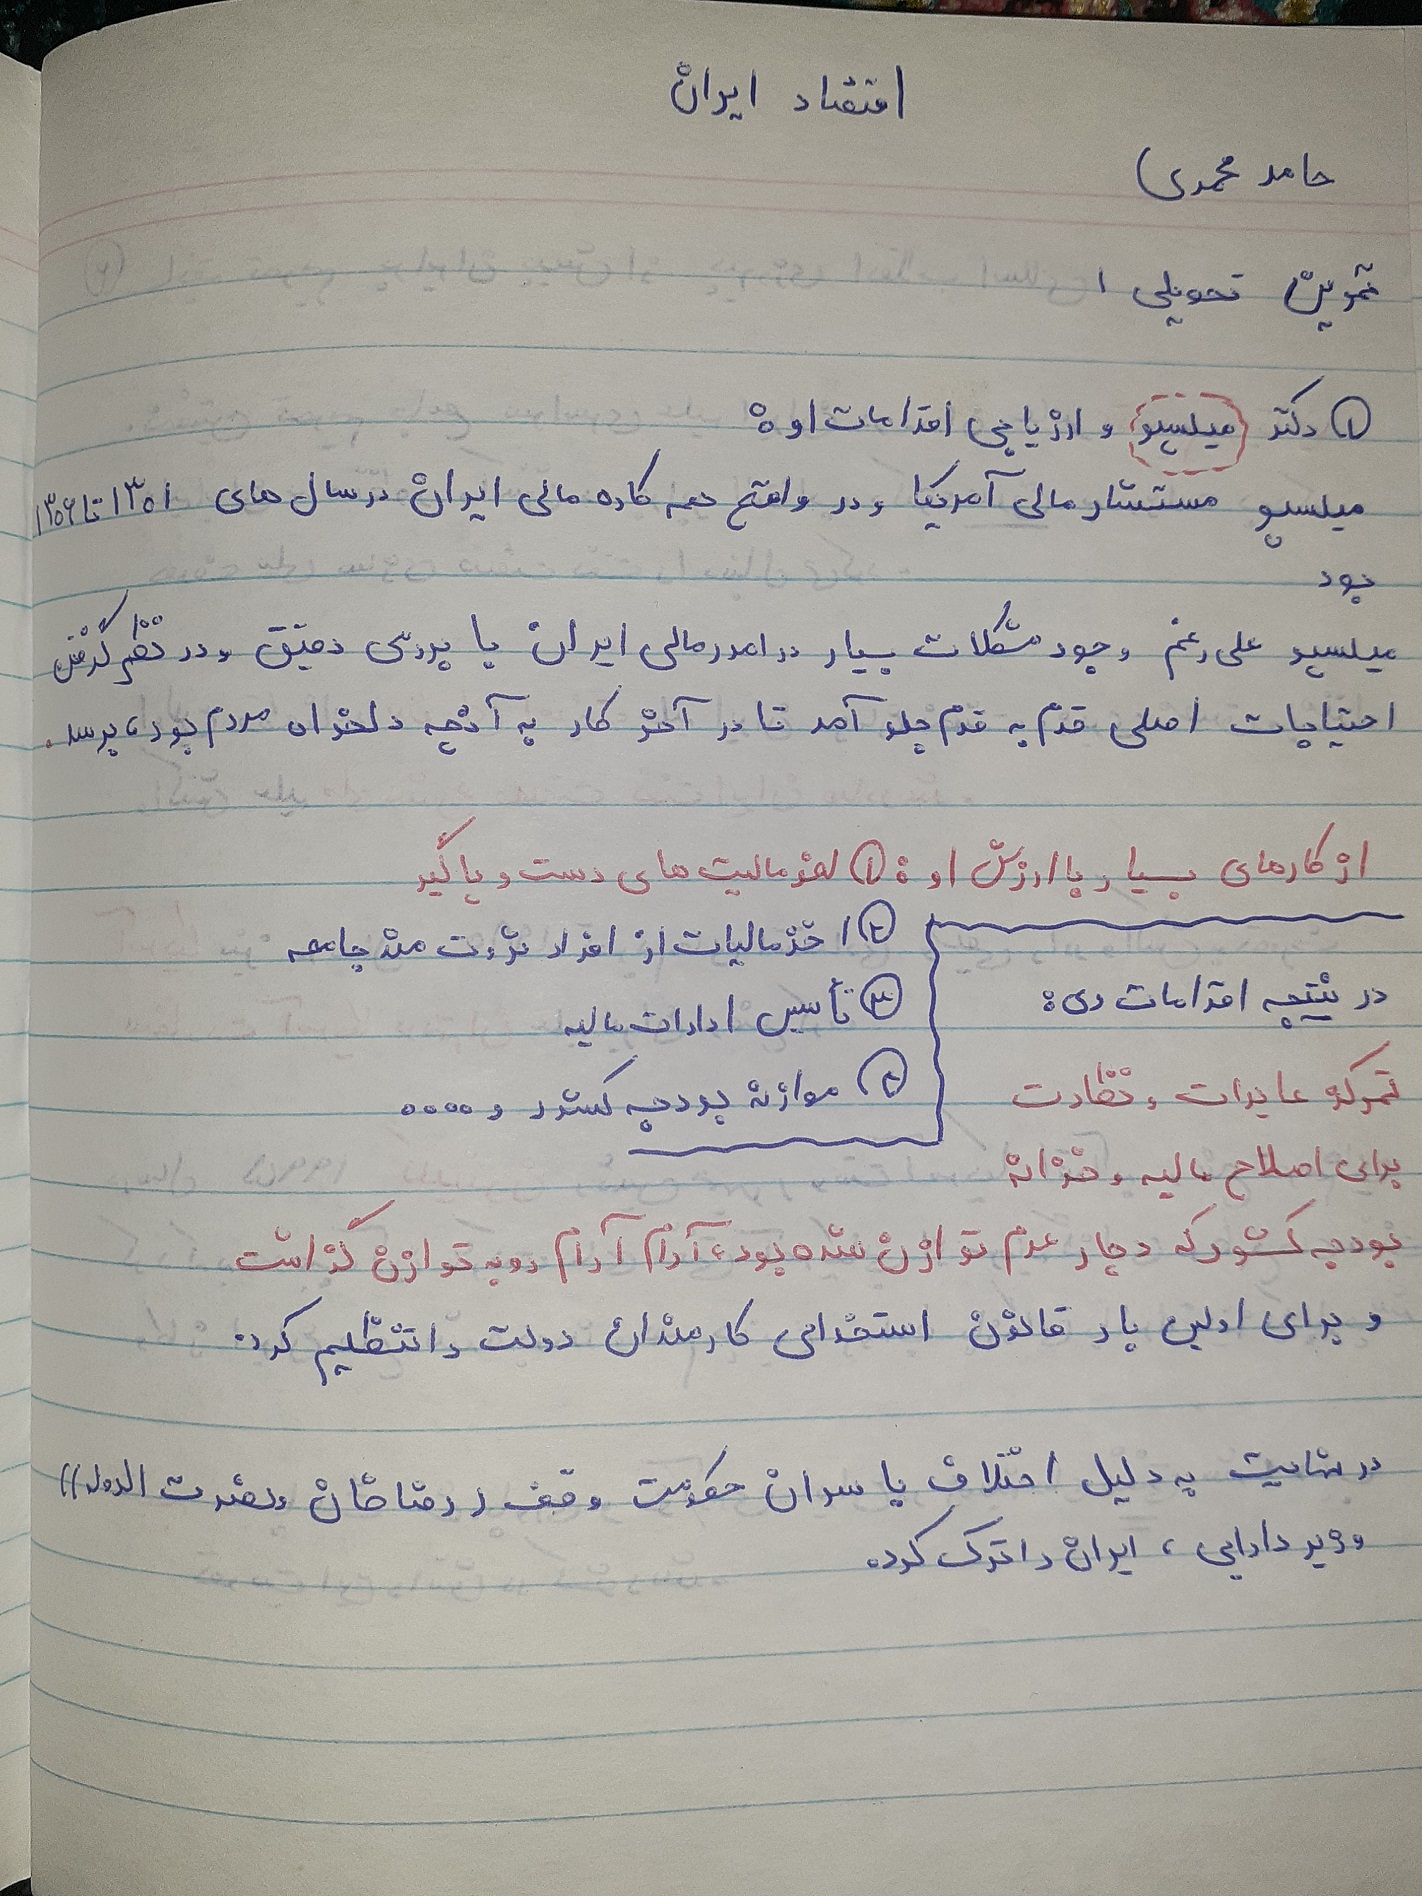 اقتصاد ایران
حامد محمدی
تمرین تحویلی ۱
① دکتر میلسپو و ارزیابی اقدامات او :
میلسپو مستشار مالی آمریکا و در واقع همه کاره مالی ایران در سال های ۱۳۰۱ تا ۱۳۰۶
بود
میلسپو علی رغم وجود مشکلات بسیار در امور مالی ایران با بررسی دقیق و در نظر گرفتن
احتیاجات اصلی قدم به قدم جلو آمد تا در آخر کار به آنچه دلخواه مردم بود، برسد.
از کارهای بسیار با ارزش او : ① لغو مالیت های دست و پاگیر
② اخذ مالیات از افراد ثروت مند جامعه
③ تأسیس ادارات مالیه
④ موازنه بودجه کشور و ....
در نتیجه اقدامات وی:
تمرکز عایدات و نظارت
برای اصلاح مالیه و خزانه
بودجه کشور که دچار عدم توازن شده بود، آرام آرام رو به توازن گذاشت
و برای اولین بار قانون استخدامی کارمندان دولت را تنظیم کرد.
در نهایت به دلیل اختلاف با سران حکومت وقت (( رضاخان و نصرت الدوله))
وزیر دارایی ، ایران را ترک کرد.